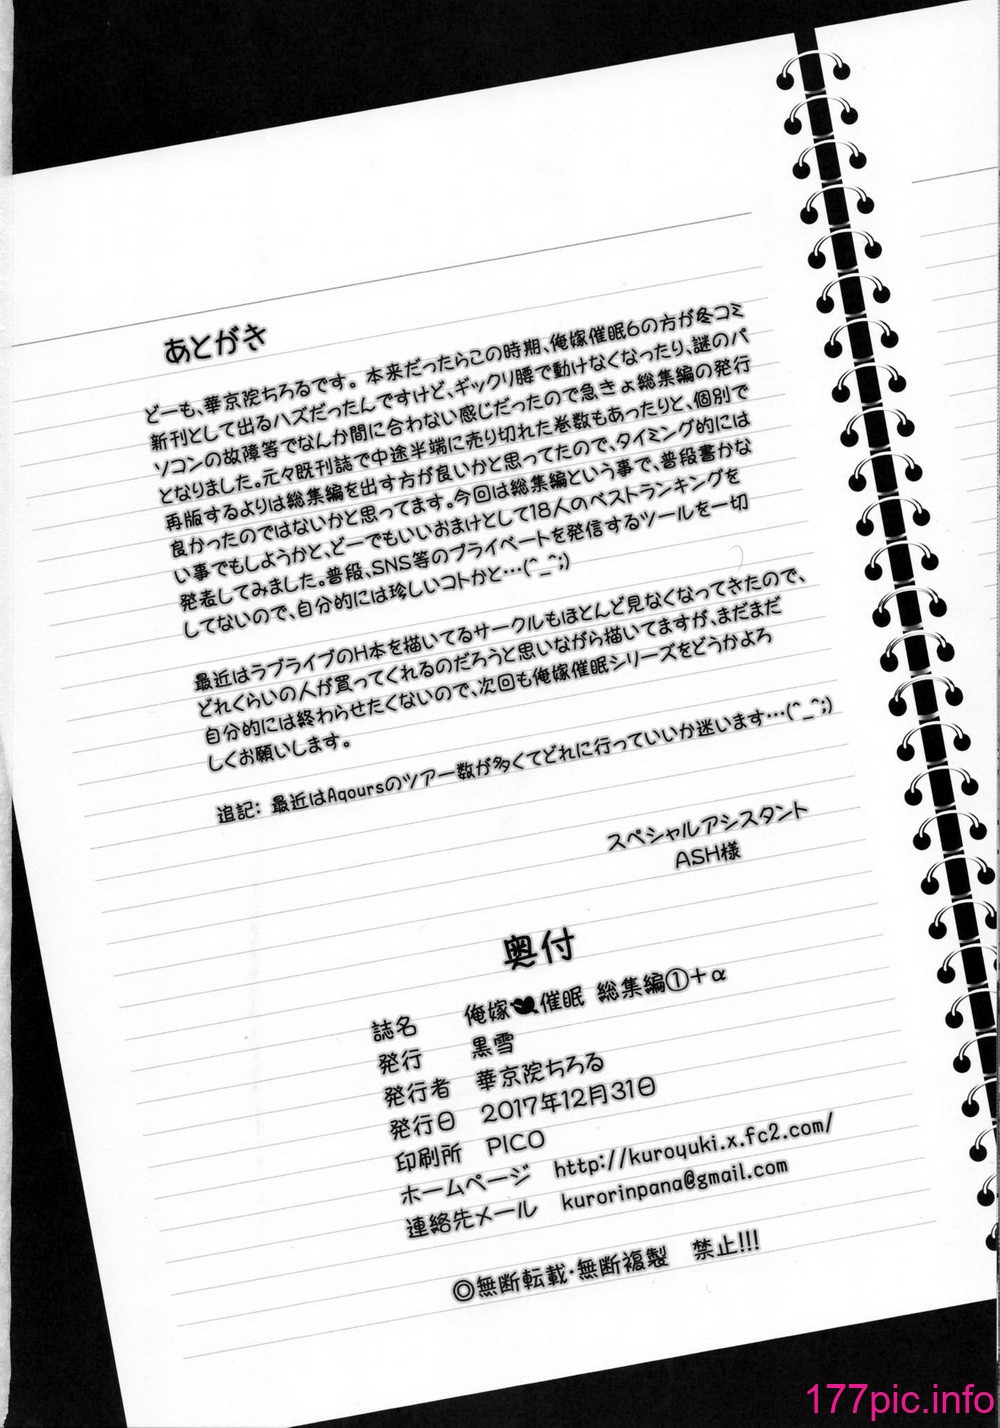 あとがき
どーも、華京院ちろるです。本来だったらこの時期、俺嫁催眠6の方が冬コミ
新刊として出るハズだったんですけど、ギックリ腰で動けなくなったり、謎のパ
ソコンの故障等でなんか間に合わない感じだったので急きょ総集編の発行
となりました。元々既刊誌で中途半端に売り切れた巻数もあったりと、個別で
再版するよりは総集編を出す方が良いかと思ってたので、タイミング的には
良かったのではないかと思ってます。今回は総集編という事で、普段書かな
い事でもしようかと、どーでもいいおまけとして18人のベストランキングを
発表してみました。普段、SNS等のプライベートを発信するツールを一切
してないので、自分的には珍しいコトかと…(^_^;)
最近はラブライブのH本を描いてるサークルもほとんど見なくなってきたので、
どれくらいの人が買ってくれるのだろうと思いながら描いてますが、まだまだ
自分的には終わらせたくないので、次回も俺嫁催眠シリーズをどうかよろ
しくお願いします。
追記: 最近はAqoursのツアー数が多くてどれに行っていいか迷います…(^_^;)
スペシャルアシスタント
ASH様
奥付
誌名 俺嫁催眠 総集編①+α
発行 黒雪
発行者 華京院ちろる
発行日 2017年12月31日
印刷所 PICO
ホームページ http://kuroyuki.x.fc2.com/
連絡先メール kurorinpana@gmail.com
◎無断転載・無断複製 禁止!!!
177pic.info